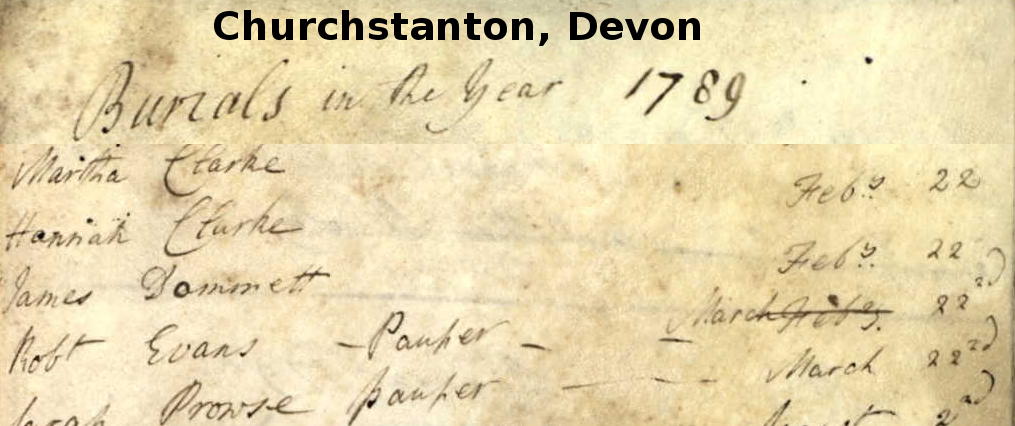 Churchstanton, Devon
Burials in the Year 1789
Martha Clarke Feb.y 22
Hannah Clarke Feb.y 22
James Dommett March Feb.y 22d
Robt Evans - Pauper - - March 22d
Sarah Prowse pauper